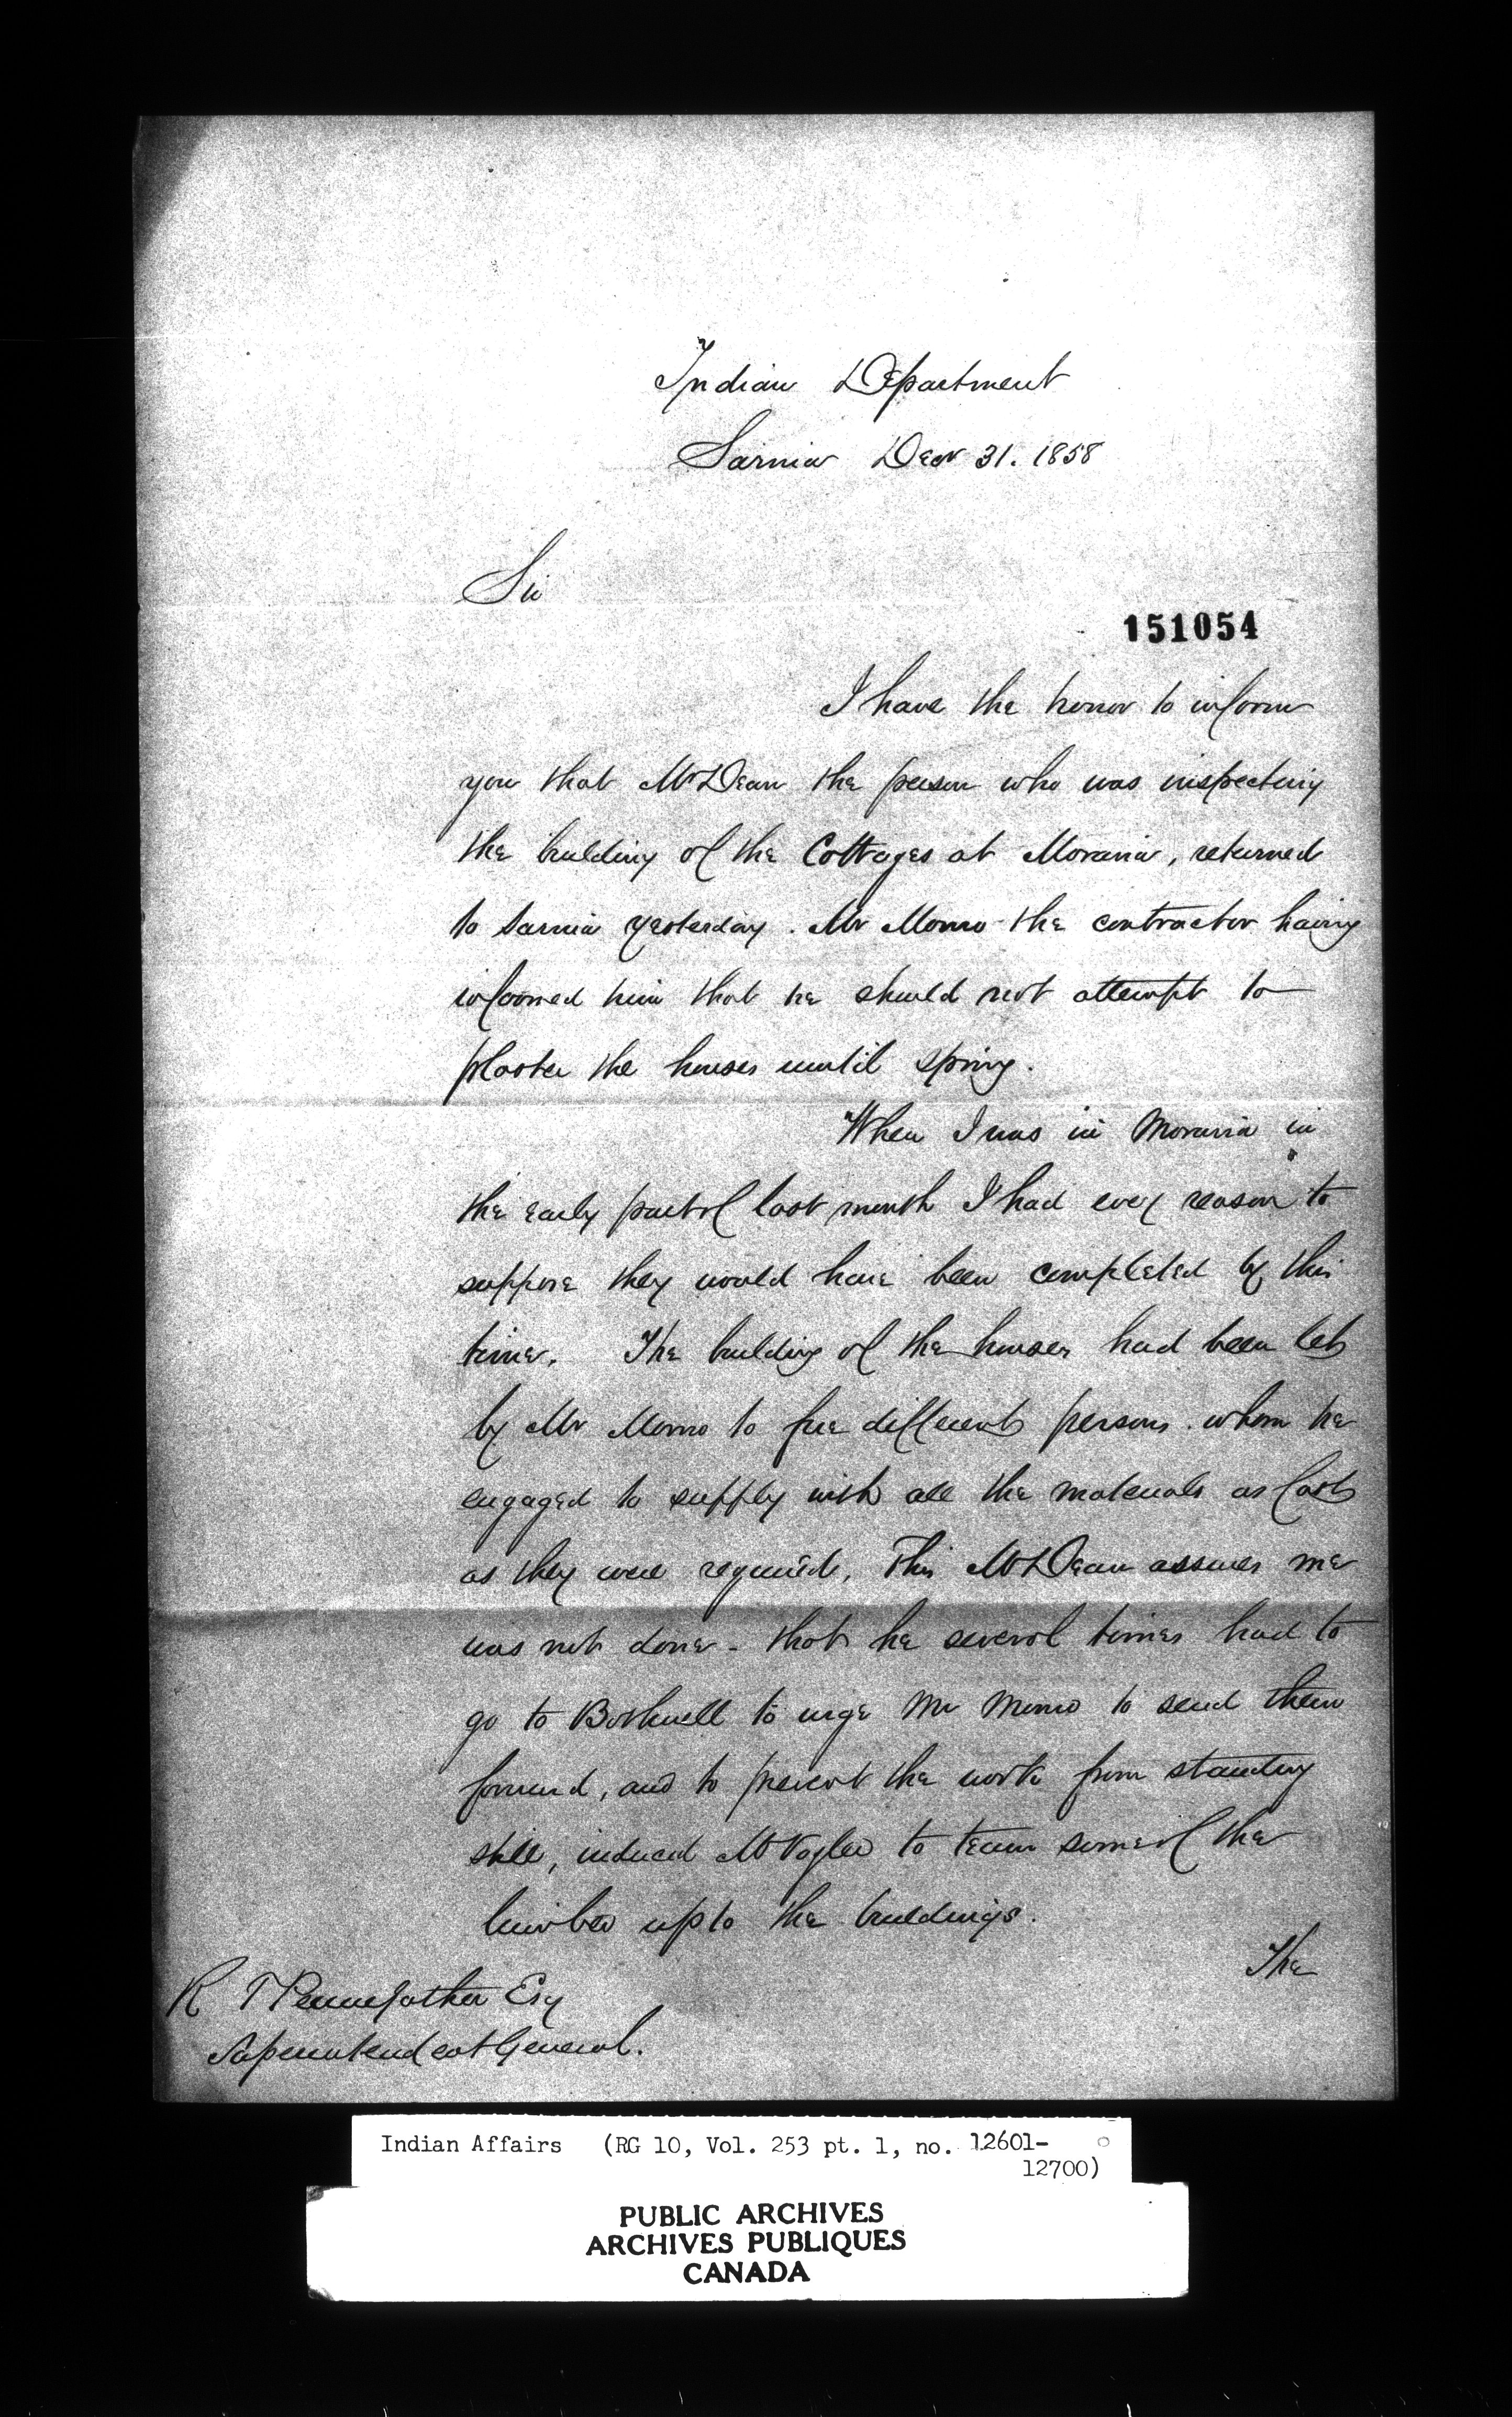 Indian Department
Sarnia Decr 31. 1858
Sir
151054
I have the honor to inform
you that Mr Dean the person who was inspecting
the building of the Cottages at Moravia, returned
to Sarnia yesterday. Mr Monro the contractor having
informed him that he should not attempt to
plaster the houses until spring.
When I was in Moravia in
the early part of last month I had every reason to
suppose they would have been completed by this
time. The building of the houses had been let
by Mr Monro to five different persons whom he
engaged to supply with all the materials as fast
as they were required, This Mr Dean assures me
was not done - that he several times had to
go to Bothwell to urge Mr Monro to send them
forward, and to prevent the work from standing
still, induced Mr Vogler to team some of the
lumber up to the buildings.
The
R T Pennefather Esq
Superintendent General.
Indian Affairs (RG 10, Vol. 253 pt. 1, no. 12601-
12700)
PUBLIC ARCHIVES
ARCHIVES PUBLIQUES
CANADA